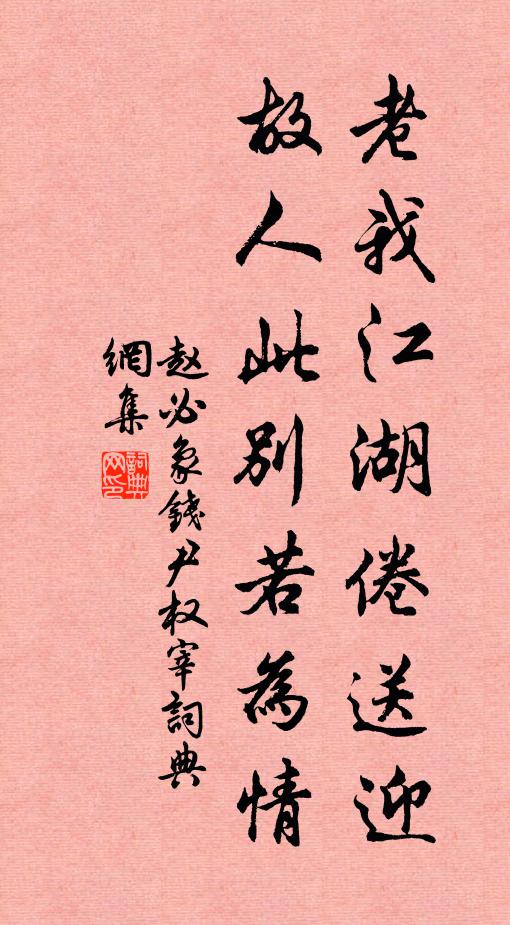 老我江湖倦送迎
故人此别若為情
赵必象錢尹权宰詞典
網集
詞典網印